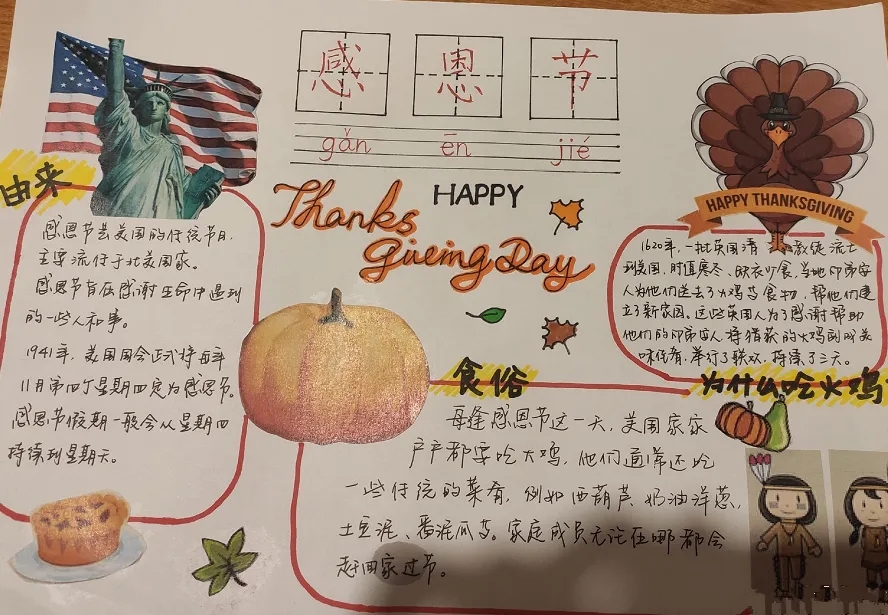 感恩节
gǎn ēn jié
HAPPY
Thanks
Giveing Day
HAPPY THANKSGIVING
由来
感恩节是美国的传统节日,
主要流行于北美国家。
感恩节旨在感谢生命中遇到
的一些人和事。
1941年,美国国会正式将每年
11月第四个星期四定为感恩节。
感恩节假期一般会从星期四
持续到星期天。
1620年,一批英国清教徒流亡
到美国,时值寒冬,缺衣少食,当地印第安
人为他们送去了火鸡等食物,帮他们建
立了新家园。这些英国人为了感谢帮助
他们的印第安人,将猎获的火鸡制成美
味佳肴,举行了联欢,持续了三天。
为什么吃火鸡
食俗
每逢感恩节这一天,美国家家
户户都要吃火鸡,他们通常还吃
一些传统的菜肴,例如西葫芦、奶油洋葱、
土豆泥、番泥瓜等。家庭成员无论在哪都会
赶回家过节。